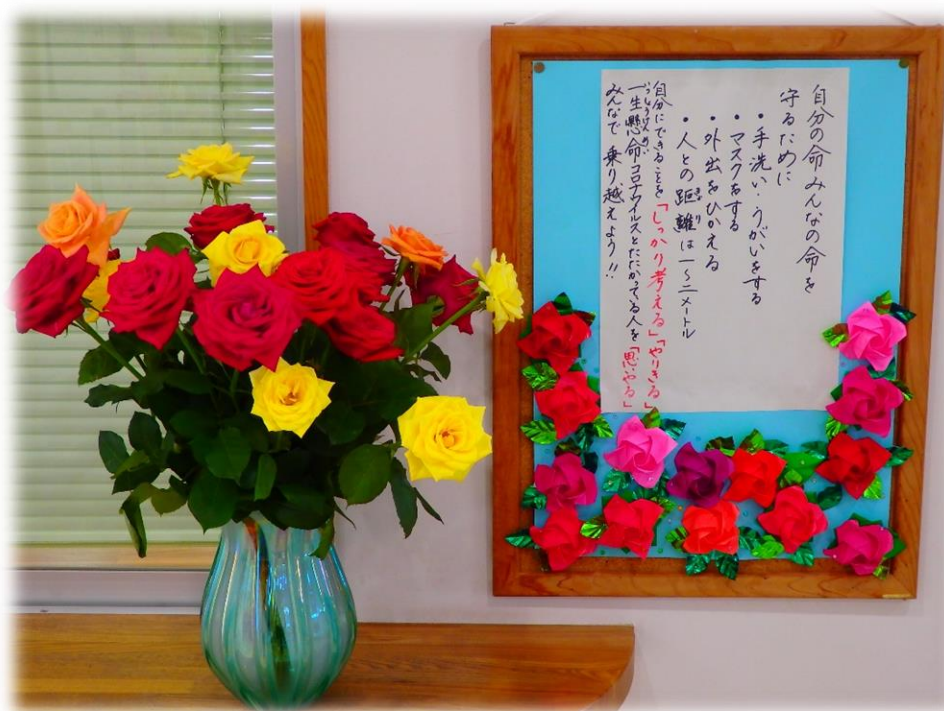 自分の命みんなの命を
守るために
・手洗い・うがいをする
・マスクをする
・外出をひかえる
・人との距離は一〜二メートル
自分にできることを「しっかり考える」「やりきる」
一生懸命コロナウイルスとたたかってる人を「思いやる」
みんなで乗り越えよう!!